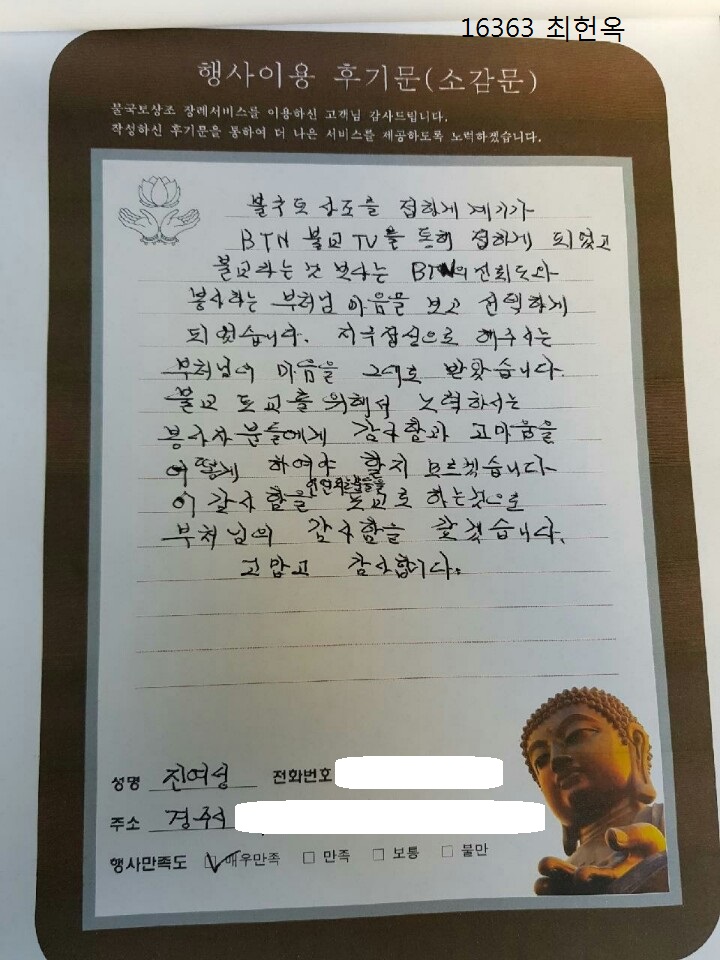 16363 최헌옥
행사이용 후기문(소감문)
불국토상조 장례서비스를 이용하신 고객님 감사드립니다.
작성하신 후기문을 통하여 더 나은 서비스를 제공하도록 노력하겠습니다.
불국토 상조를 접하게 계기가
BTN 불교 TV를 통해 접하게 되었고
불교라는 것 보다는 BTN의 신뢰도와
봉사하는 부처님 마음을 보고 선택하게
되었습니다. 지극정실으로 해주시는
부처님의 마음을 그대로 받았습니다.
불교 포교를 위해서 노력하시는
봉사자 분들에게 감사함과 고마움을
어떻게 하여야 할지 모르겠습니다
이 감사함을 포교로 하는것으로
부처님의 감사함을 찾겠습니다.
고맙고 감사합니다.
성명 진여성 전화번호
주소 경주시
행사만족도 매우만족 만족 보통 불만